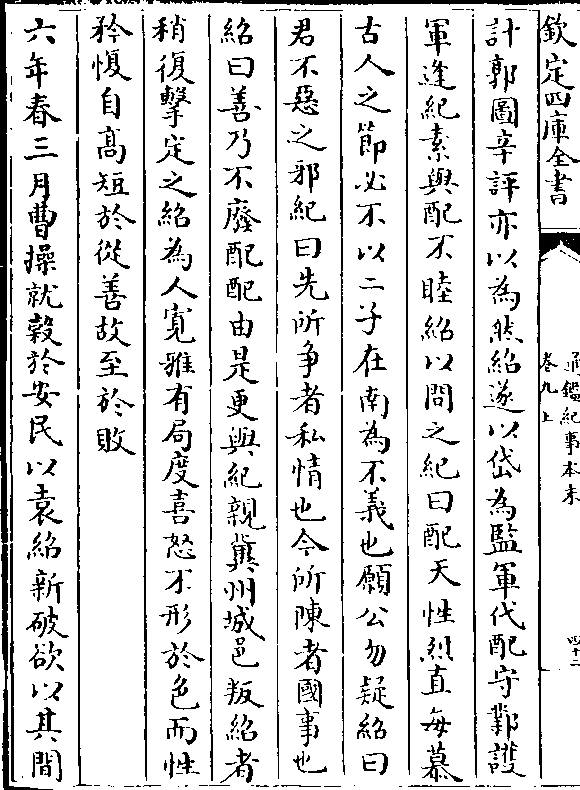 欽定四庫全書
通鑑紀事本末
卷九上
四十二
計郭圖辛評亦以為然紹遂以岱為監軍代配守鄴護
軍逢紀素與配不睦紹以問之紀曰配天性烈直每慕
古人之節必不以二子在南為不義也願公勿疑紹曰
君不惡之邪紀曰先所爭者私情也今所陳者國事也
紹曰善乃不廢配配由是更與紀親冀州城邑叛紹者
稍復擊定之紹為人寛雅有局度喜怒不形於色而性
矜愎自高短於從善故至於敗
六年春三月曹操就穀於安民以袁紹新破欲以其間